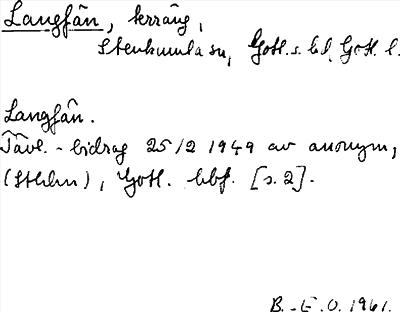 Langfân, terräng,
Stenkumla sn, Gotl. s. hd, Gotl. l.
Langfân.
Tävl.-bidrag 25/2 1949 av anonym,
(Sthlm), Gotl. hbf. [s. 2].
B.-E.O. 1961.